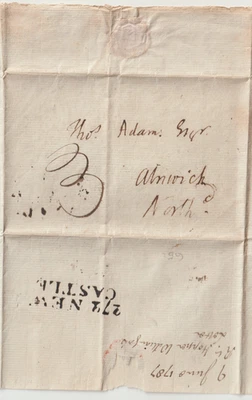 Thos Adam. Esqr
Alnwick
Northd
272 NEW
CASTLE
9 June 1787